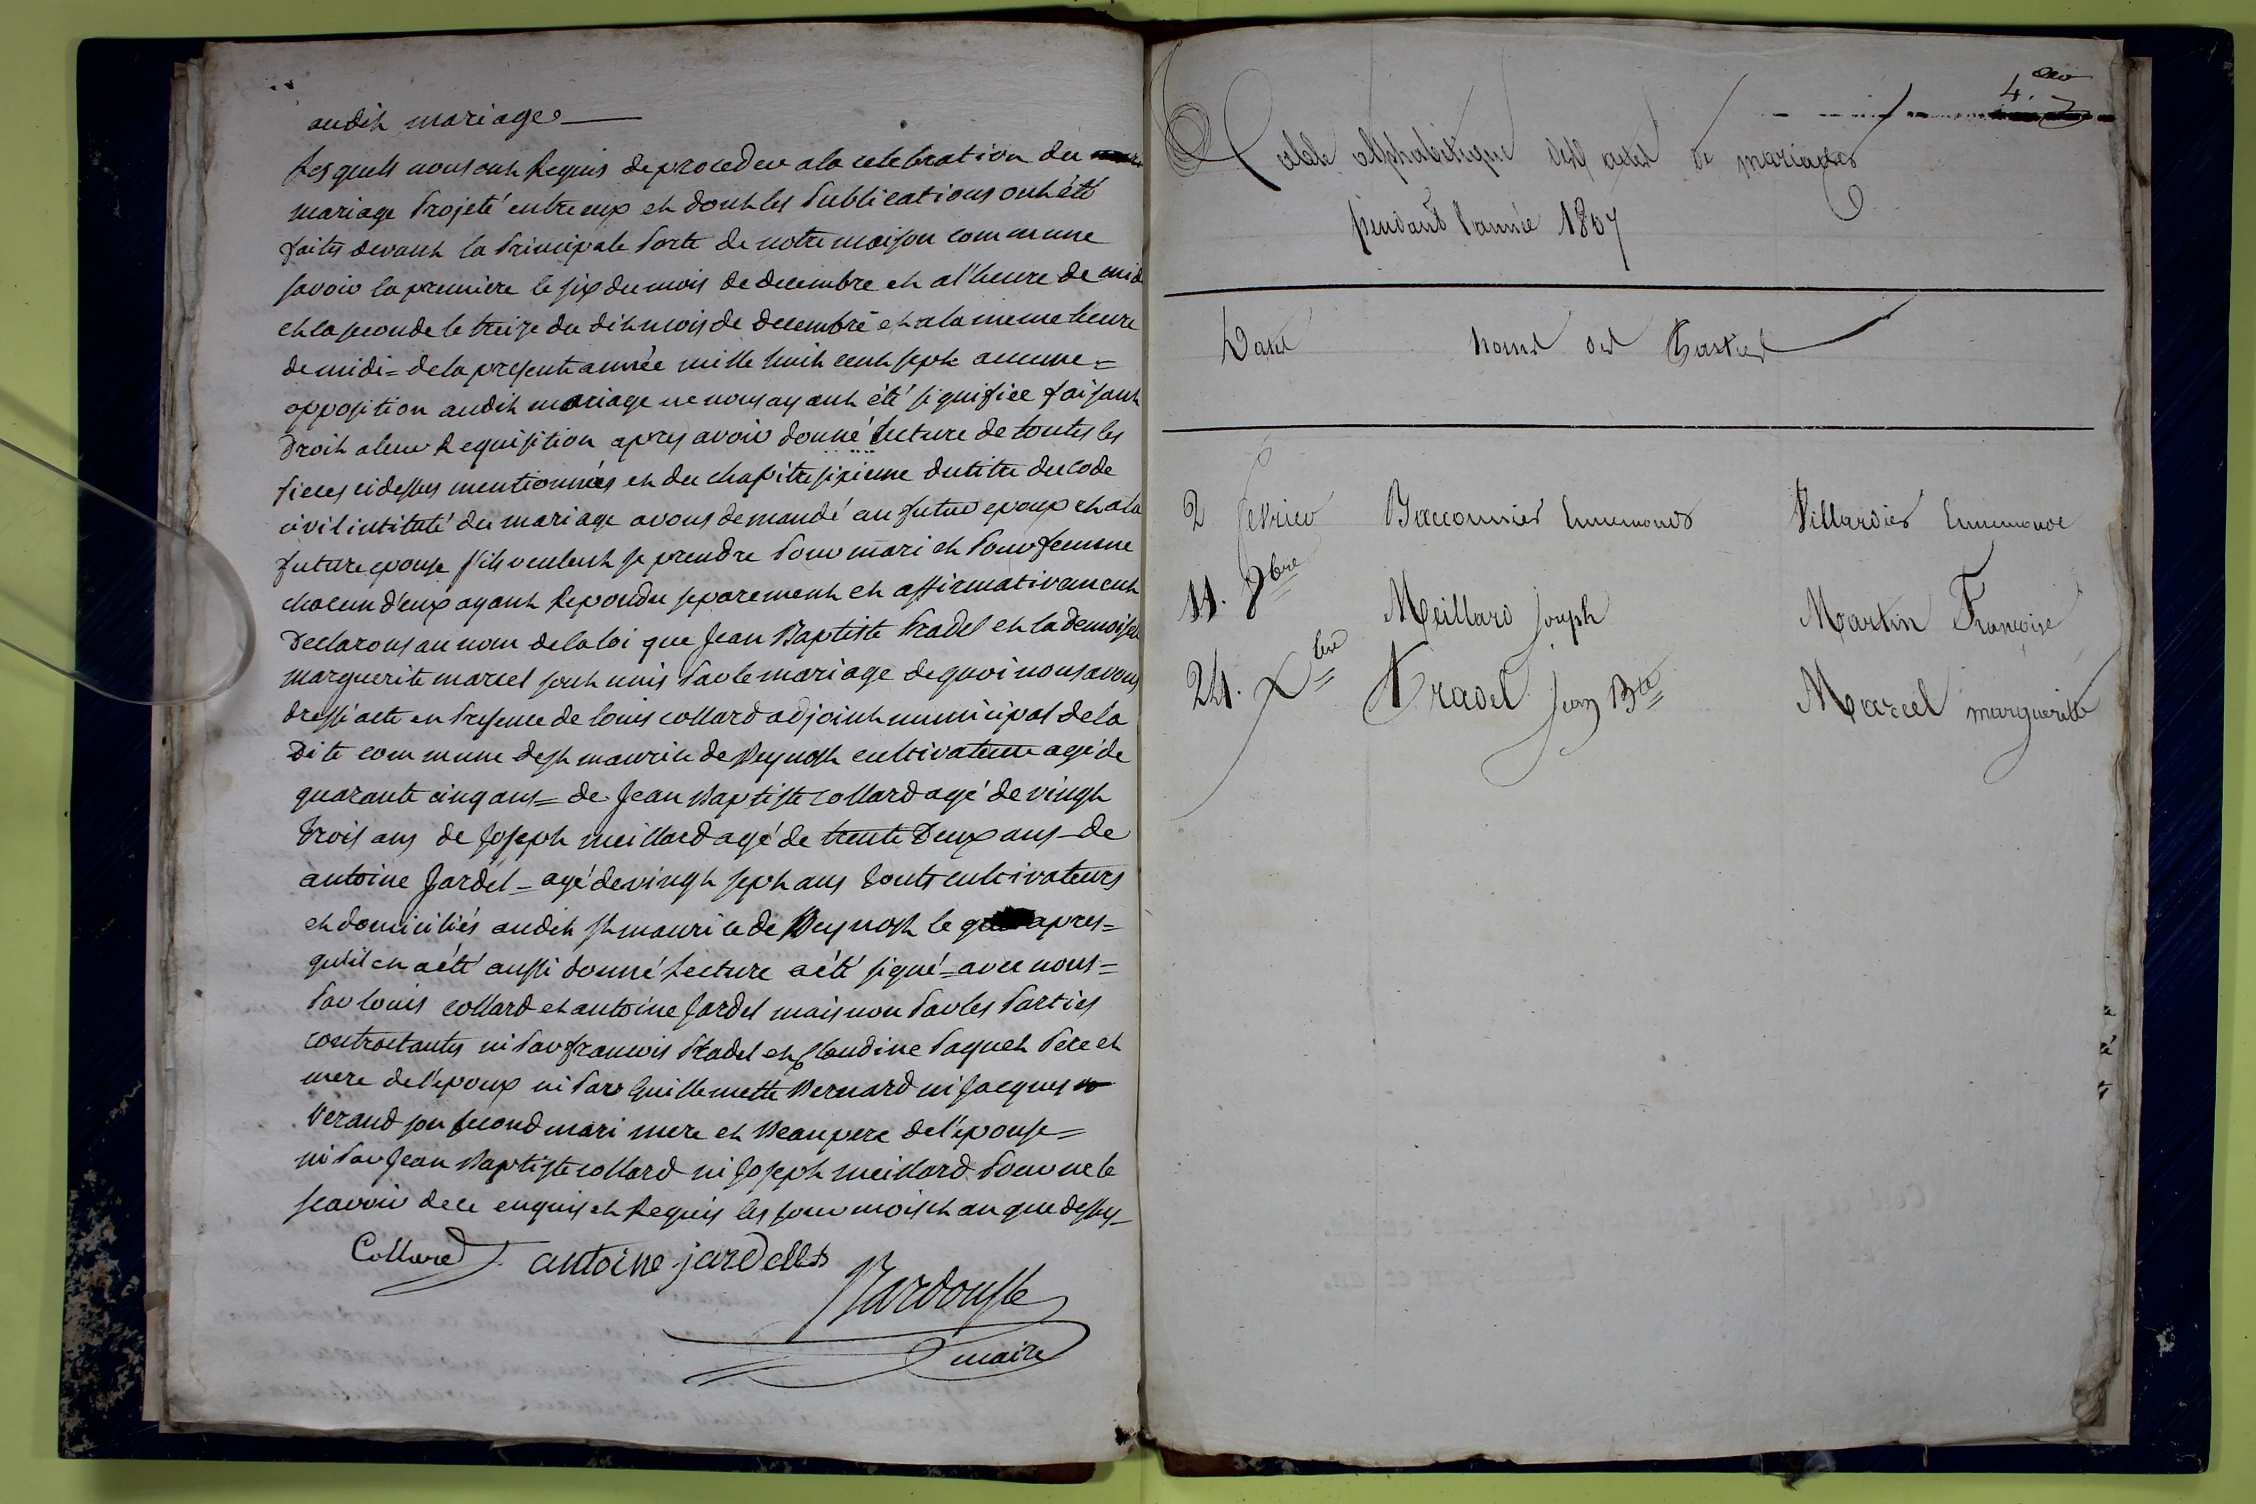 audit mariage
lesquels nous ont Requis de proceder a la celebration du
mariage projeté entre eux et dont les publications ont été
faites devant la principale porte de notre maison commune
savoir la premiere le six du mois de decembre et a l'heure de midi
et la seconde le treize du dit mois de decembre et a la meme heure
de midi = de la presente année mille huit cent sept aucune =
opposition audit mariage ne nous ayant été signifiée faisant
droit a leur Requisition apres avoir donné lecture de toutes les
pieces cidessus mentionnées et du chapitre sixieme du titre du code
civil intitulé du mariage avons demandé au futur epoux et a la
future epouse s'ils veulent se prendre pour mari et pour femme
chacun d'eux ayant Repondu separement et affirmativement
Declarons au nom de la loi que Jean Baptiste Pradel et la demoiselle
marguerite marcel sont unis par le mariage de quoi nous avons
dressé acte en presence de louis collard adjoint municipal de la
Dite commune de st maurice de Beynost cultivateur agé de
quarante cinq ans = de Jean Baptiste collard agé de vingt
trois ans de Joseph meillard agé de trente Deux ans - de
antoine Jardel = agé de vingt sept ans touts cultivateurs
et domiciliés audit st maurice de Beynost le apres =
qu'il en a été aussi donné Lecture a été signé = avec nous =
par louis collard et antoine Jardel mais non par les parties
contractantes ni par francois Pradel et Claudine paquet pere et
mere de l'epoux ni par Guillemette Bernard ni Jacques
Verand son second mari mere et Beaupere de l'epouse =
ni par Jean Baptiste collard ni Joseph meillard pour ne le
scavoir de ce enquis et Requis les jour mois et an que dessus
Collard antoine jardellet
maire
4.
Table alphabétique des actes de mariages
pendant l'année 1807
Dates Noms des Parties
2 fevrier Baconnier Ennemond Villardier Ennemonde
11. 9bre Meillard Joseph Martin Françoise
24. Xbre Pradel Jean Bte Marcel marguerite